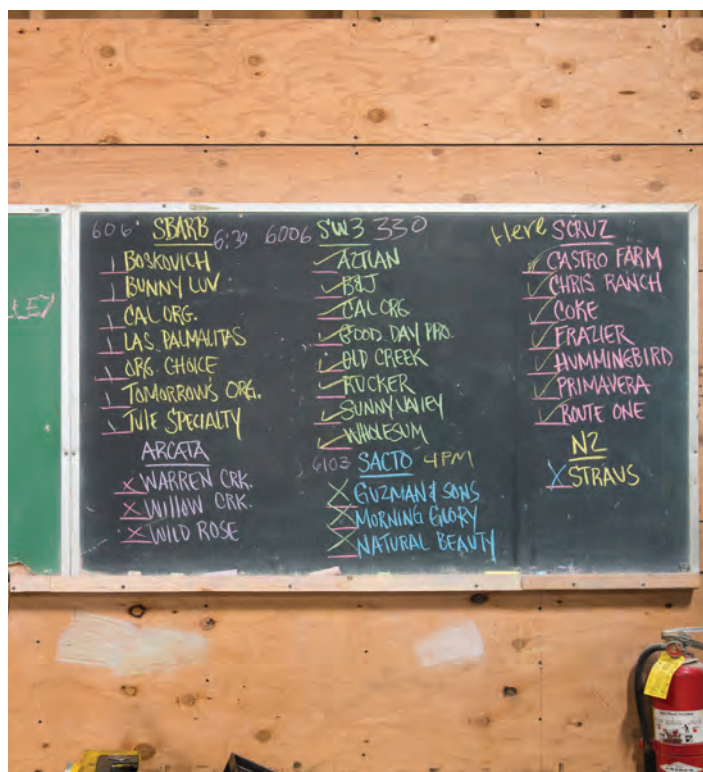 LEY
606 SBARB 6:30
BOSKOVICH
BUNNY LUV
CAL ORG.
LAS PALMALITAS
ORG. CHOICE
TOMORROW'S ORG.
TULE SPECIALTY
ARCATA
WARREN CRK.
WILLOW CRK.
WILD ROSE
6006 SW3 330
AZTLAN
B&J
CAL ORG
GOOD DAY PRO.
OLD CREEK
RUCKER
SUNNY VALLEY
WHOLESUM
6103 SACTO 4PM
GUZMAN & SONS
MORNING GLORY
NATURAL BEAUTY
Here SCRUZ
CASTRO FARM
CHRIS RANCH
COKE
FRAZIER
HUMMINGBIRD
PRIMAVERA
ROUTE ONE
N2
STRAUS
INSTRUCTIONS